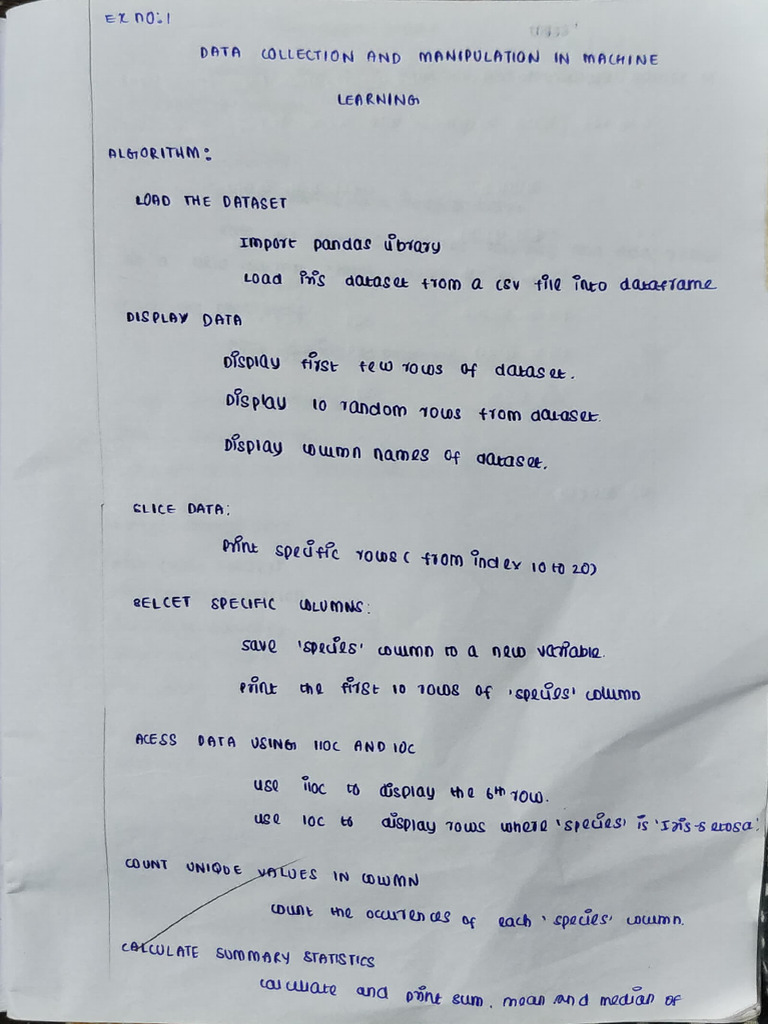 EX NO:1
DATA COLLECTION AND MANIPULATION IN MACHINE
LEARNING
ALGORITHM:
LOAD THE DATASET
Import pandas library
Load iris dataset from a csv file into dataframe
DISPLAY DATA
Display first few rows of dataset.
Display 10 random rows from dataset.
Display column names of dataset.
SLICE DATA:
Print specific rows ( from index 10 to 20)
SELCET SPECIFIC COLUMNS:
save 'species' column to a new variable.
Print the first 10 rows of 'species' column
ACESS DATA USING ILOC AND LOC
use iloc to display the 6th row.
use loc to display rows where 'species' is 'Iris-setosa'.
COUNT UNIQUE VALUES IN COLUMN
count the occurrences of each 'species' column.
CALCULATE SUMMARY STATISTICS
calculate and print sum, mean and median of